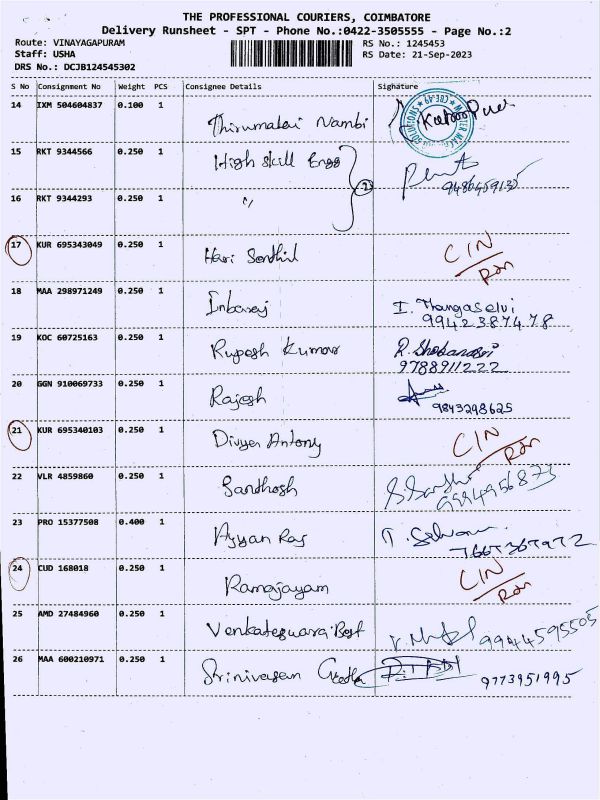 THE PROFESSIONAL COURIERS, COIMBATORE
Delivery Runsheet - SPT - Phone No.:0422-3505555 - Page No.:2
Route: VINAYAGAPURAM RS No.: 1245453
Staff: USHA RS Date: 21-Sep-2023
DRS No.: DCJB124545302
S No Consignment No Weight PCS Consignee Details Signature
14 IXM 504604837 0.100 1 Thirumalai Nambi
15 RKT 9344566 0.250 1 High Skill Engg 2
9486459135
16 RKT 9344293 0.250 1 "
17 KUR 695343049 0.250 1 Hari Senthil CIN
18 MAA 298971249 0.250 1 Inbaraj I. Thangaselvi
9942387478
19 KOC 60725163 0.250 1 Rupesh Kumar R. Shobanadevi
9788911222
20 GGN 910069733 0.250 1 Rajesh
9843298625
21 KUR 695340103 0.250 1 Divya Antony CIN
22 VLR 4859860 0.250 1 Sandhosh
9994956873
23 PRO 15377508 0.400 1 Ayyan Raj T. Selvam
7667367972
24 CUD 168018 0.250 1 Ramajayam CIN
25 AMD 27484960 0.250 1 Venkateswara 9944595505
26 MAA 600210971 0.250 1 Srinivasan Geetha
9773951995